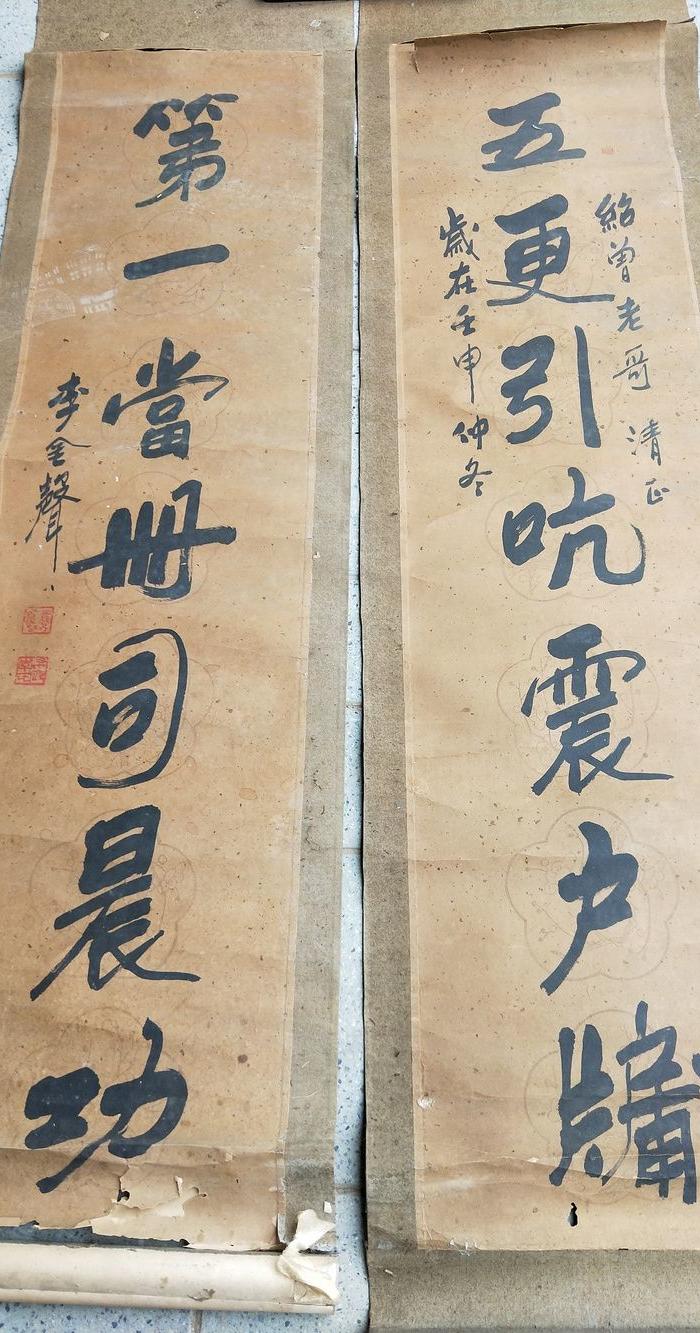 紹曾老哥 清正
五更引吭震户牖
歲在壬申仲冬
第一當冊司晨功
李金聲